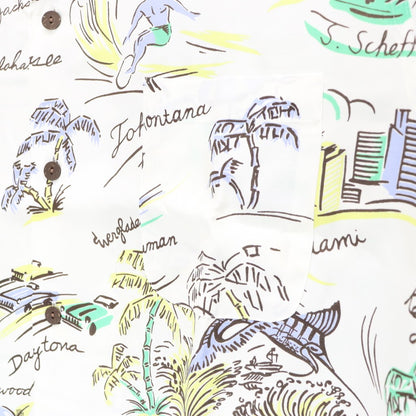 Jacks
lahasee
J. Scheff
Johontana
Everglade
wman
iami
Daytona
wood